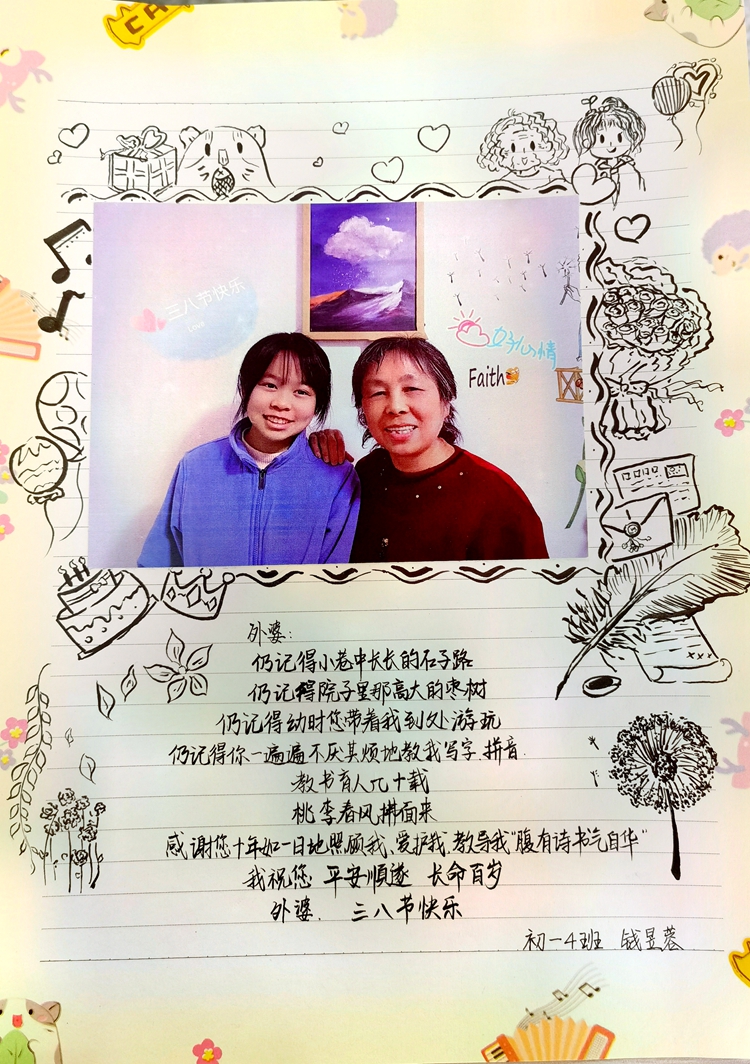 CA
三八节快乐
Love
好心情
Faith
外婆:
仍记得小巷中长长的石子路
仍记得院子里那高大的枣树
仍记得幼时您带着我到处游玩
仍记得你一遍遍不厌其烦地教我写字.拼音.
教书育人几十载
桃李春风拂面来
感谢您十年如一日地照顾我、爱护我、教导我"腹有诗书气自华"
我祝您: 平安顺遂 长命百岁
外婆. 三八节快乐
初一4班 钱昱蓉